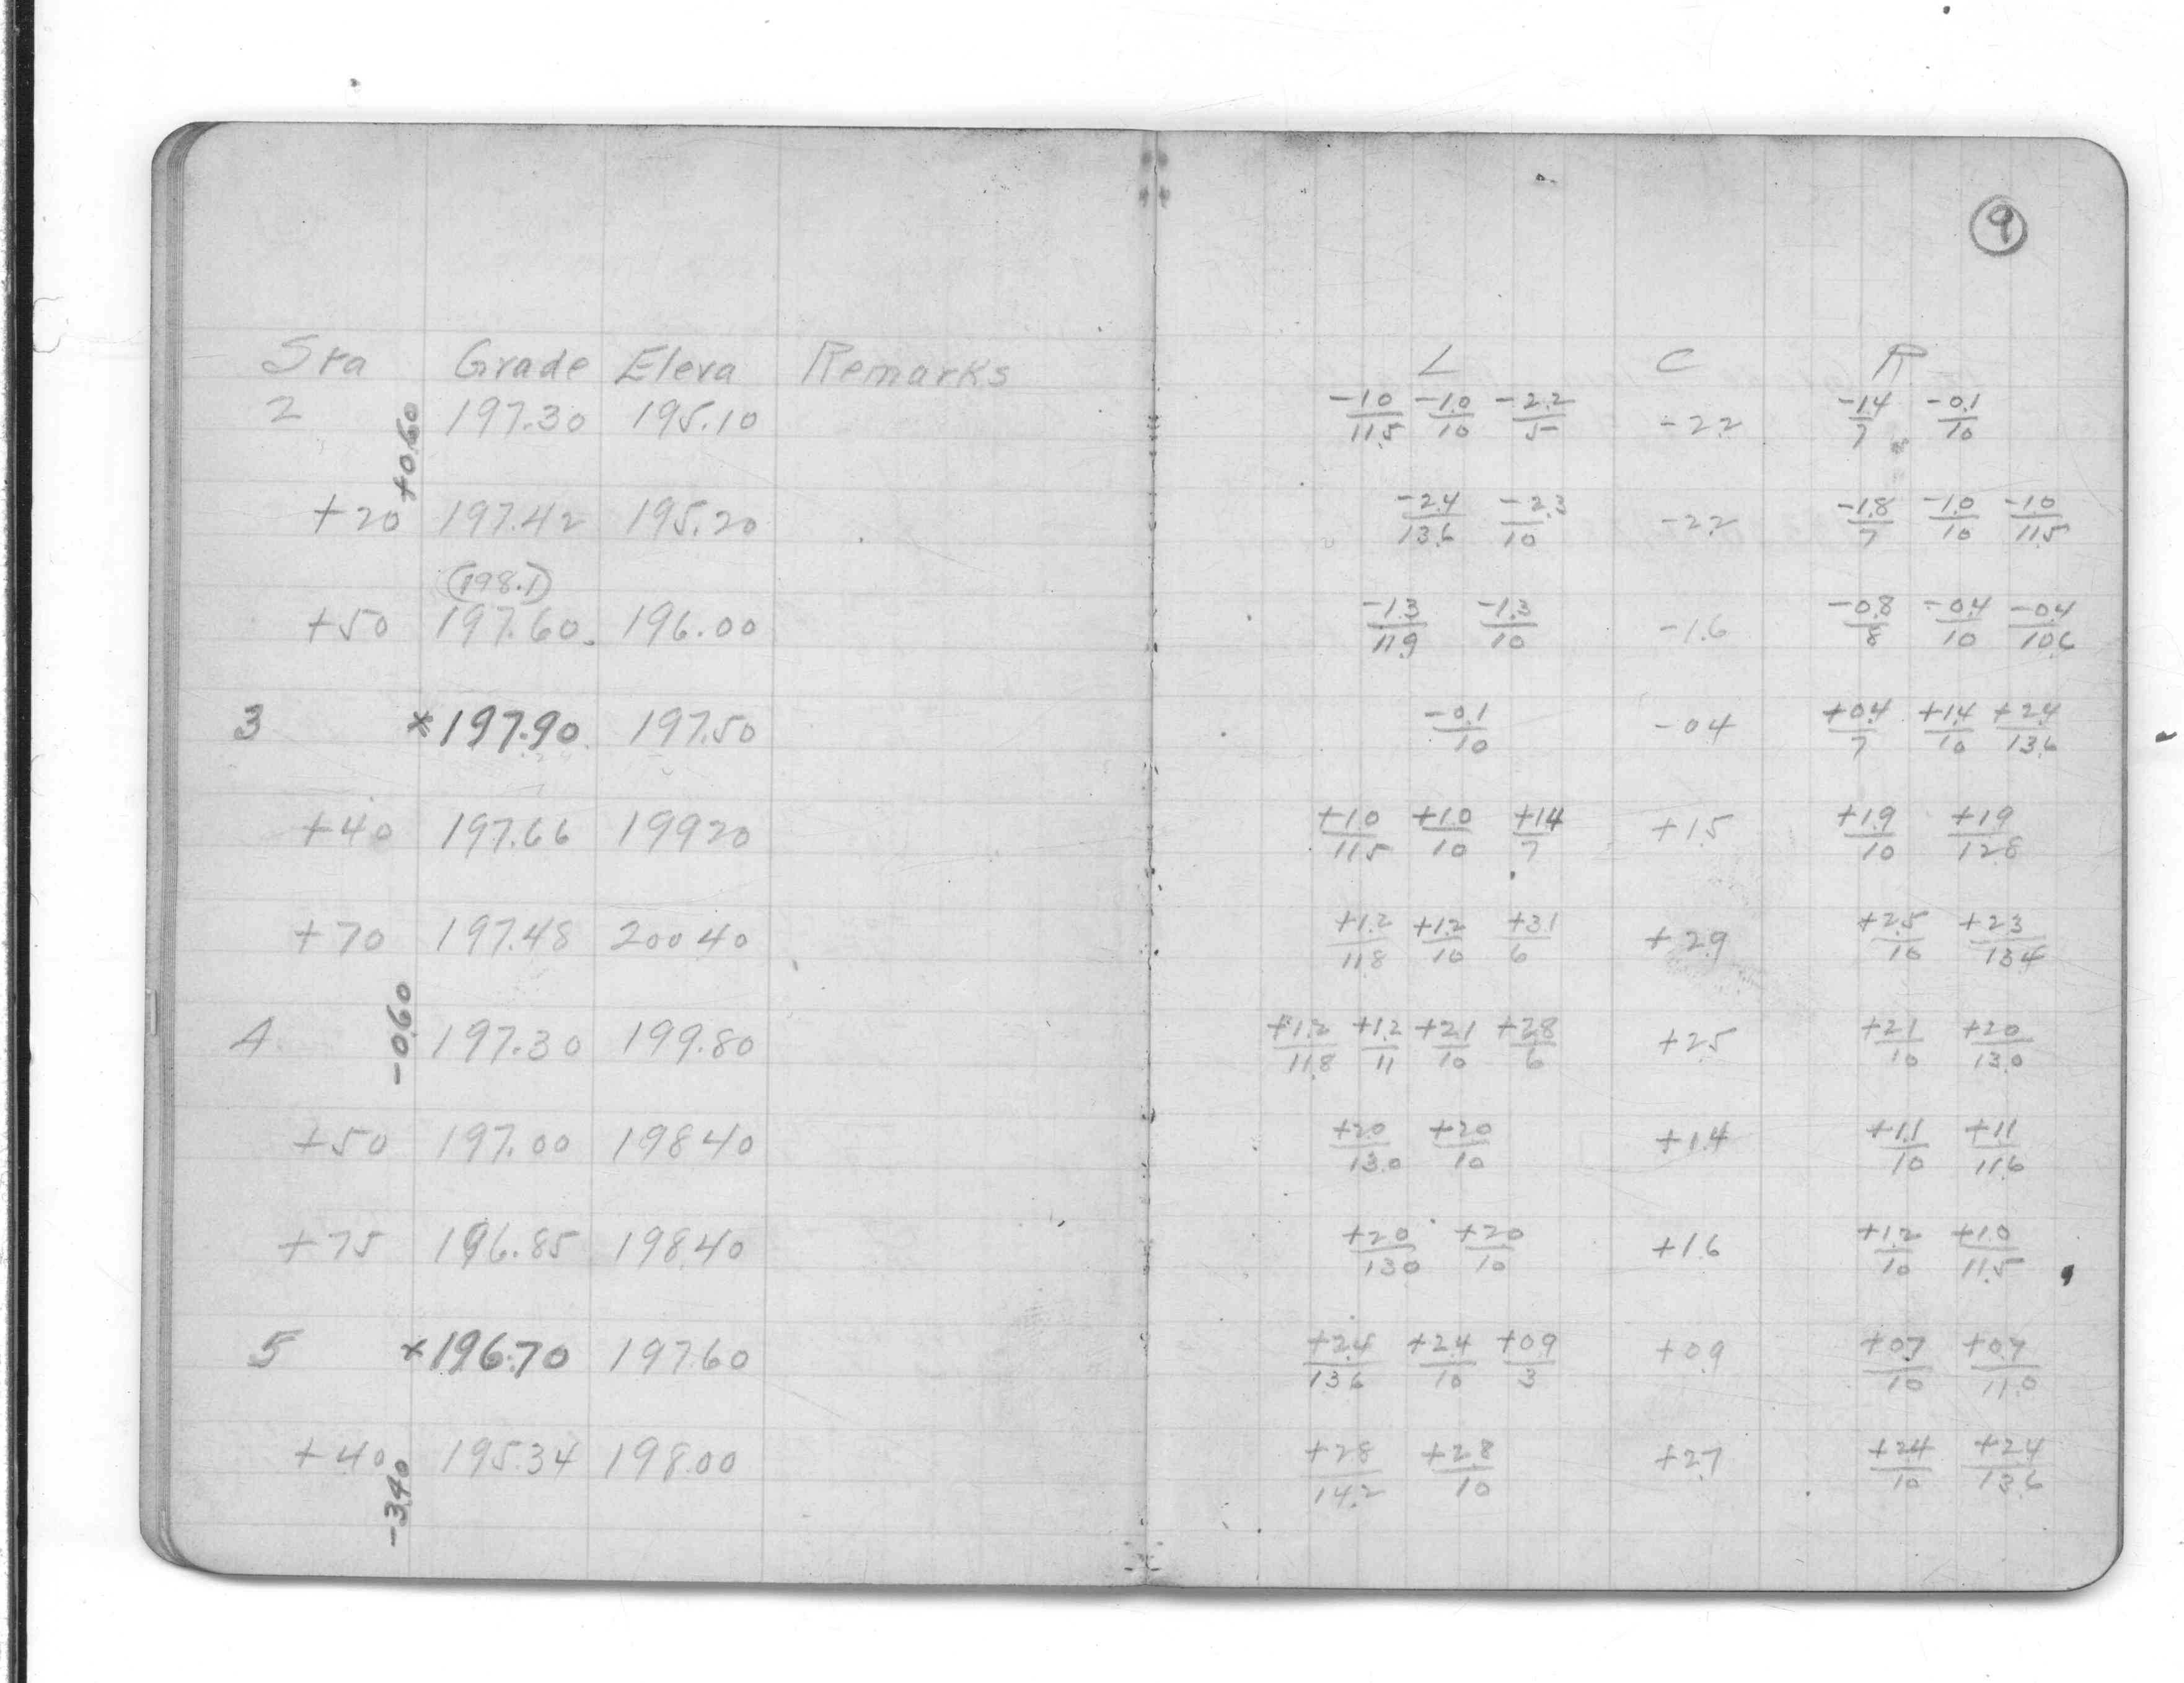 9
Sta Grade Eleva Remarks L C R
2 197.30 195.10 -1.0/11.5 -1.0/10 -2.2/5 -2.2 -1.4/7 -0.1/10
+0.60
+20 197.42 195.20 -2.4/13.6 -2.3/10 -2.2 -1.8/7 -1.0/10 -1.0/11.5
(198.1)
+50 197.60 196.00 -1.3/11.9 -1.3/10 -1.6 -0.8/8 -0.4/10 -0.4/10.6
3 *197.90 197.50 -0.1/10 -0.4 +0.4/7 +1.4/10 +2.4/13.6
+40 197.66 199.20 +1.0/11.5 +1.0/10 +1.4/7 +1.5 +1.9/10 +1.9/12.8
+70 197.48 200.40 +1.2/11.8 +1.2/10 +3.1/6 +2.9 +2.5/10 +2.3/13.4
-0.60
4 197.30 199.80 +1.2/11.8 +1.2/11 +2.1/10 +2.8/6 +2.5 +2.1/10 +2.0/13.0
+50 197.00 198.40 +2.0/13.0 +2.0/10 +1.4 +1.1/10 +1.1/11.6
+75 196.85 198.40 +2.0/13.0 +2.0/10 +1.6 +1.2/10 +1.0/11.5
5 *196.70 197.60 +2.4/13.6 +2.4/10 +0.9/3 +0.9 +0.7/10 +0.7/11.0
+40 195.34 198.00 +2.8/14.2 +2.8/10 +2.7 +2.4/10 +2.4/13.6
-3.40